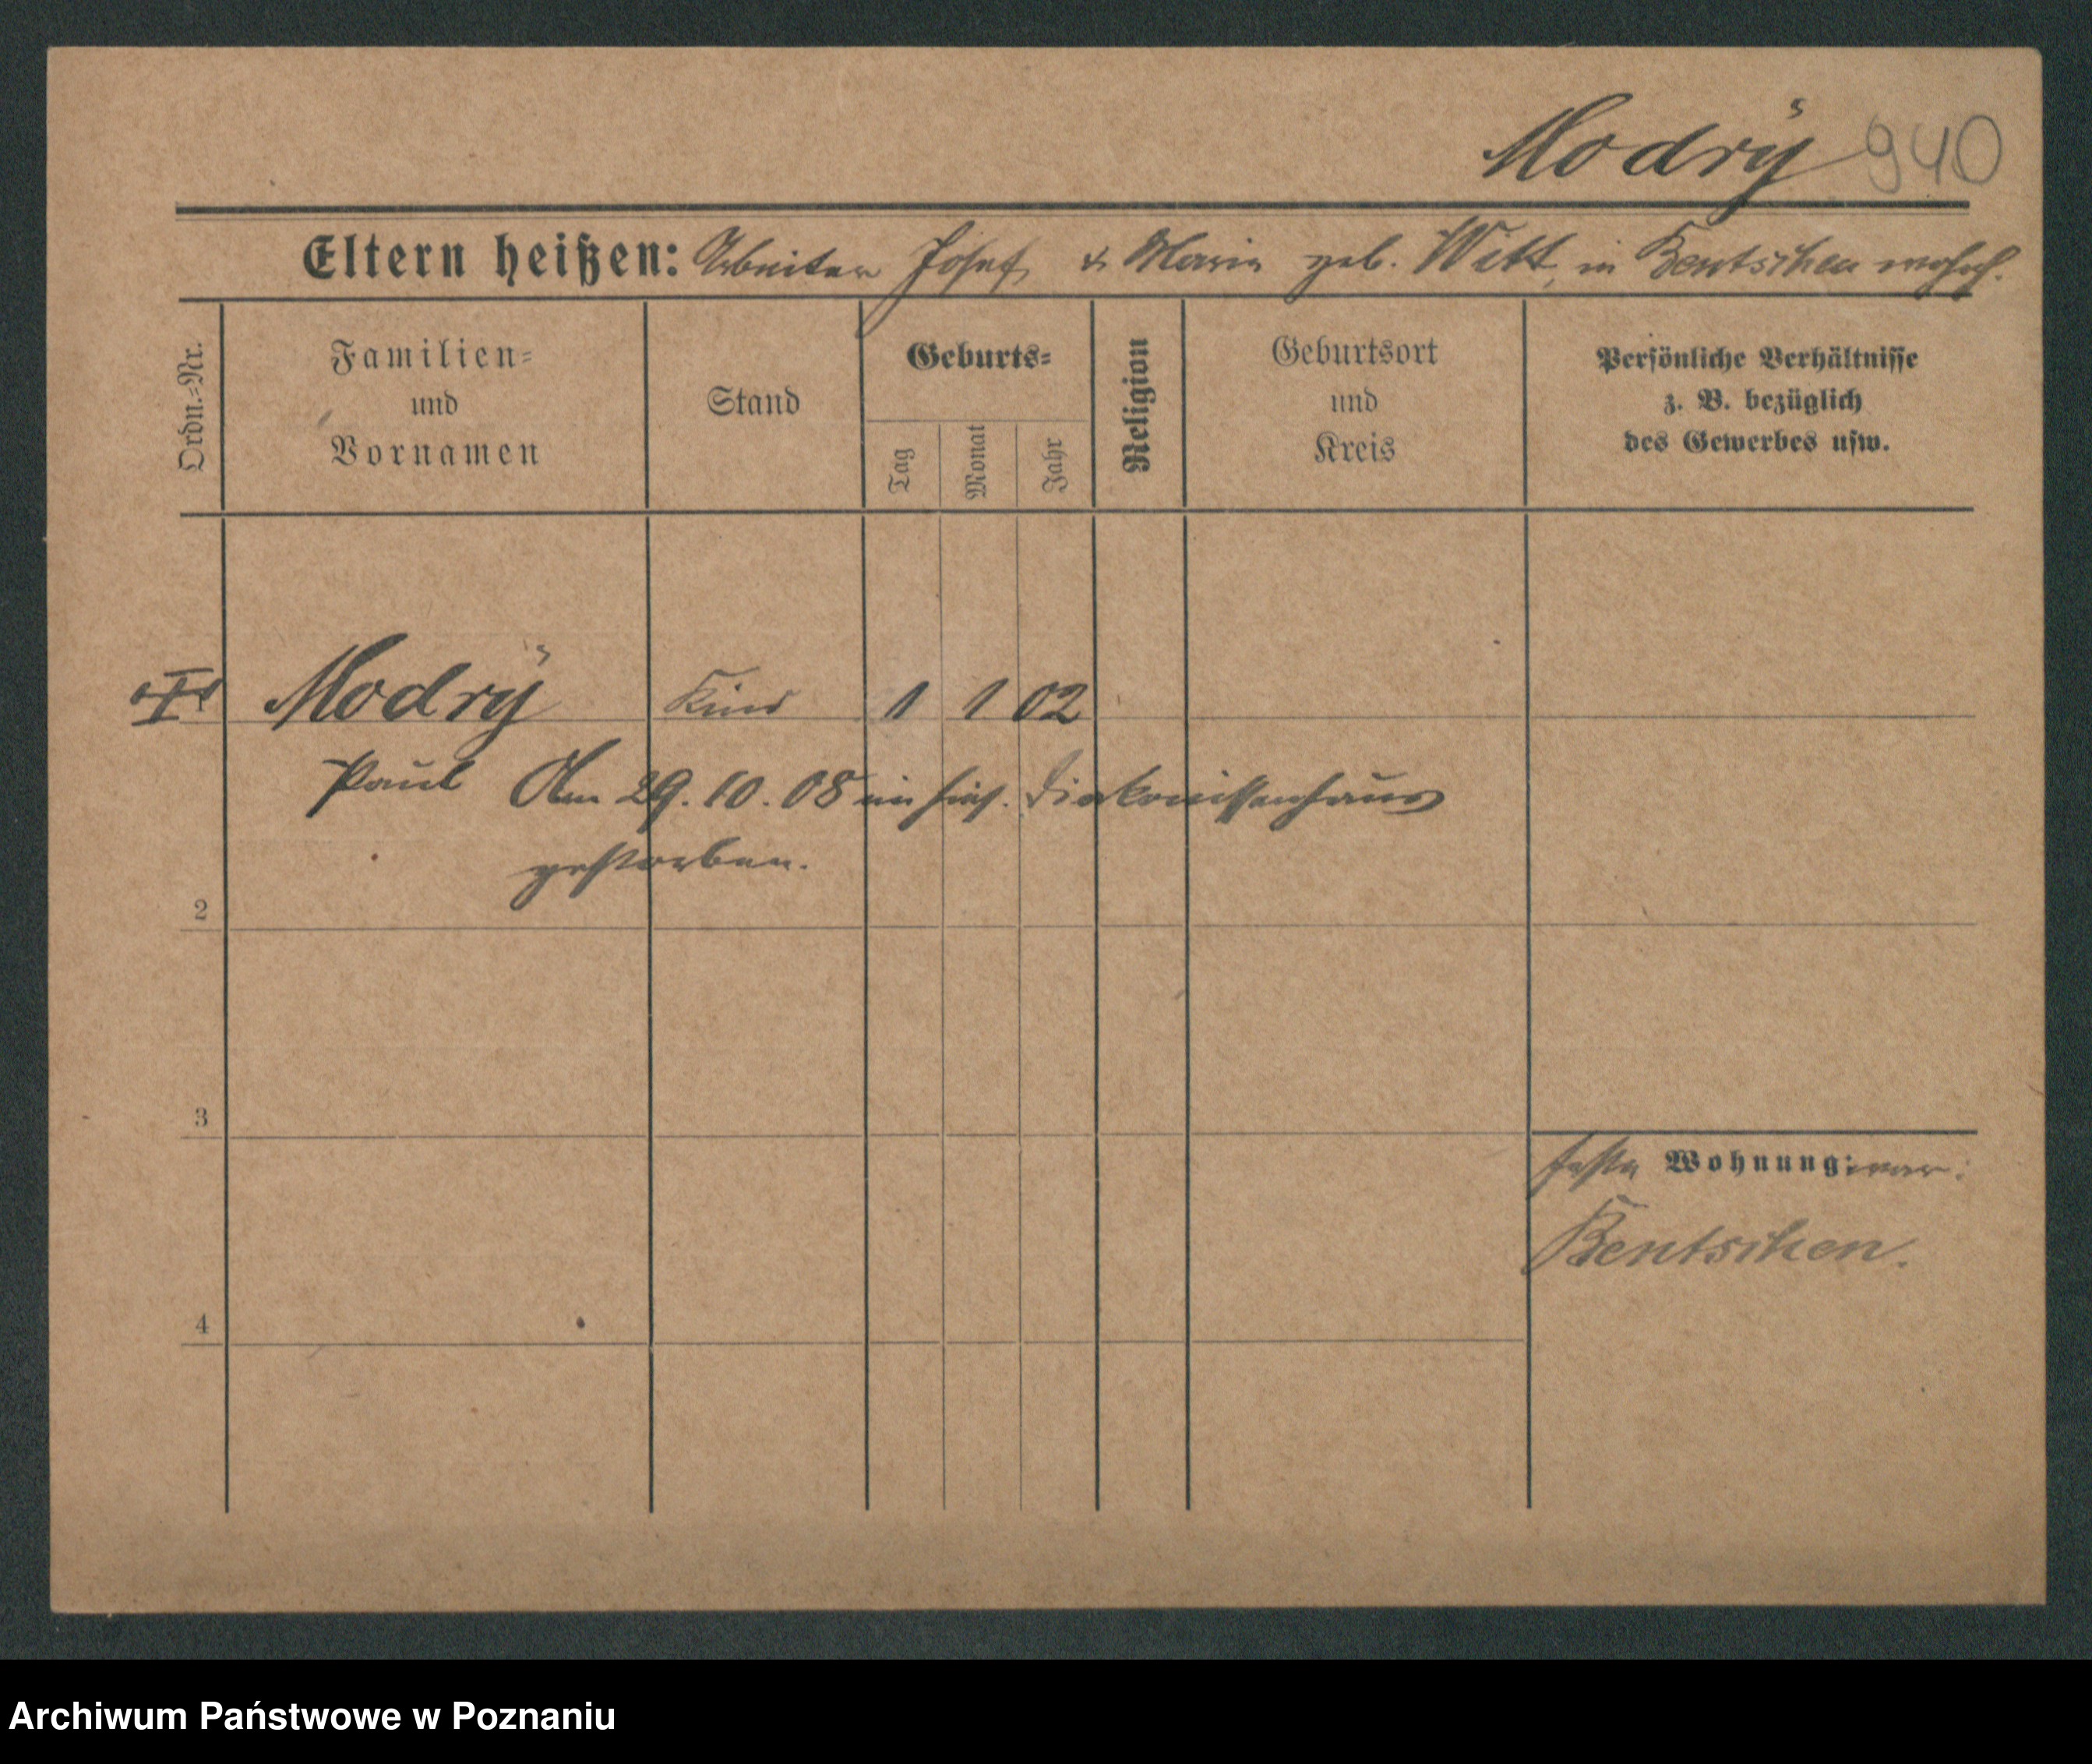 Modrÿ 940
Eltern heißen: Arbeiter Josef & Maria geb. Witt, in Bentschen wohnh.
Ordn.=Nr.
Familien=
und
Vornamen
Stand
Geburts=
Tag
Monat
Jahr
Religion
Geburtsort
und
Kreis
Persönliche Verhältnisse
z. B. bezüglich
des Gewerbes usw.
1 Modrÿ Kind 1 1 02
Paul Am 29. 10. 08 im hies. Diakonissenhaus
gestorben.
2
3
feste Wohnung: war:
Bentschen.
4
Archiwum Państwowe w Poznaniu